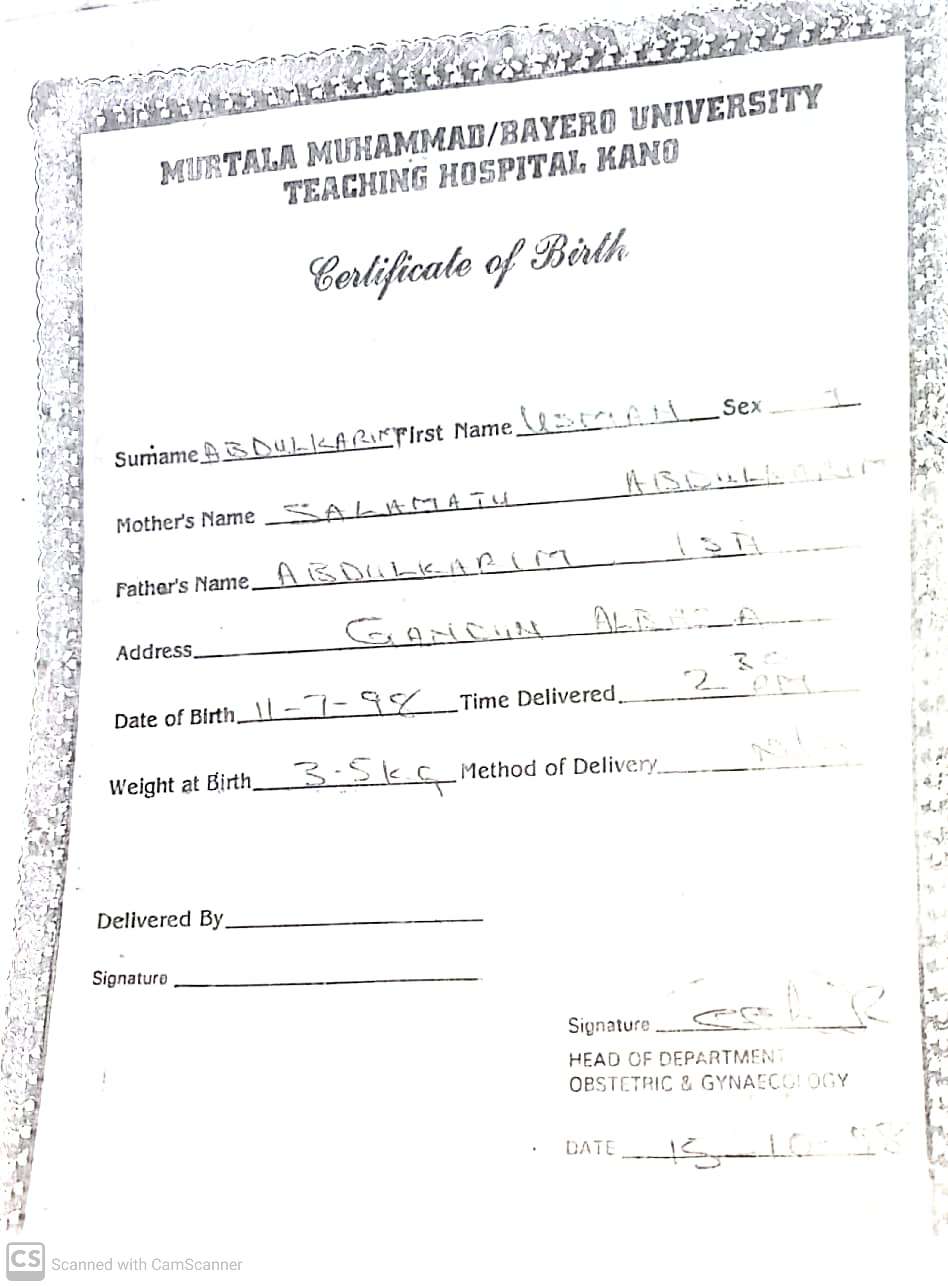 MURTALA MUHAMMAD/BAYERO UNIVERSITY
TEACHING HOSPITAL KANO
Certificate of Birth
Surname ABDULKARIM First Name USMAN Sex
Mother's Name SALAMATU ABDULKARIM
Father's Name ABDULKARIM
Address
Date of Birth 11-7-98 Time Delivered 2 30 PM
Weight at Birth 3.5kg Method of Delivery
Delivered By
Signature
Signature
HEAD OF DEPARTMENT
OBSTETRIC & GYNAECOLOGY
DATE 15-10-98
CS Scanned with CamScanner